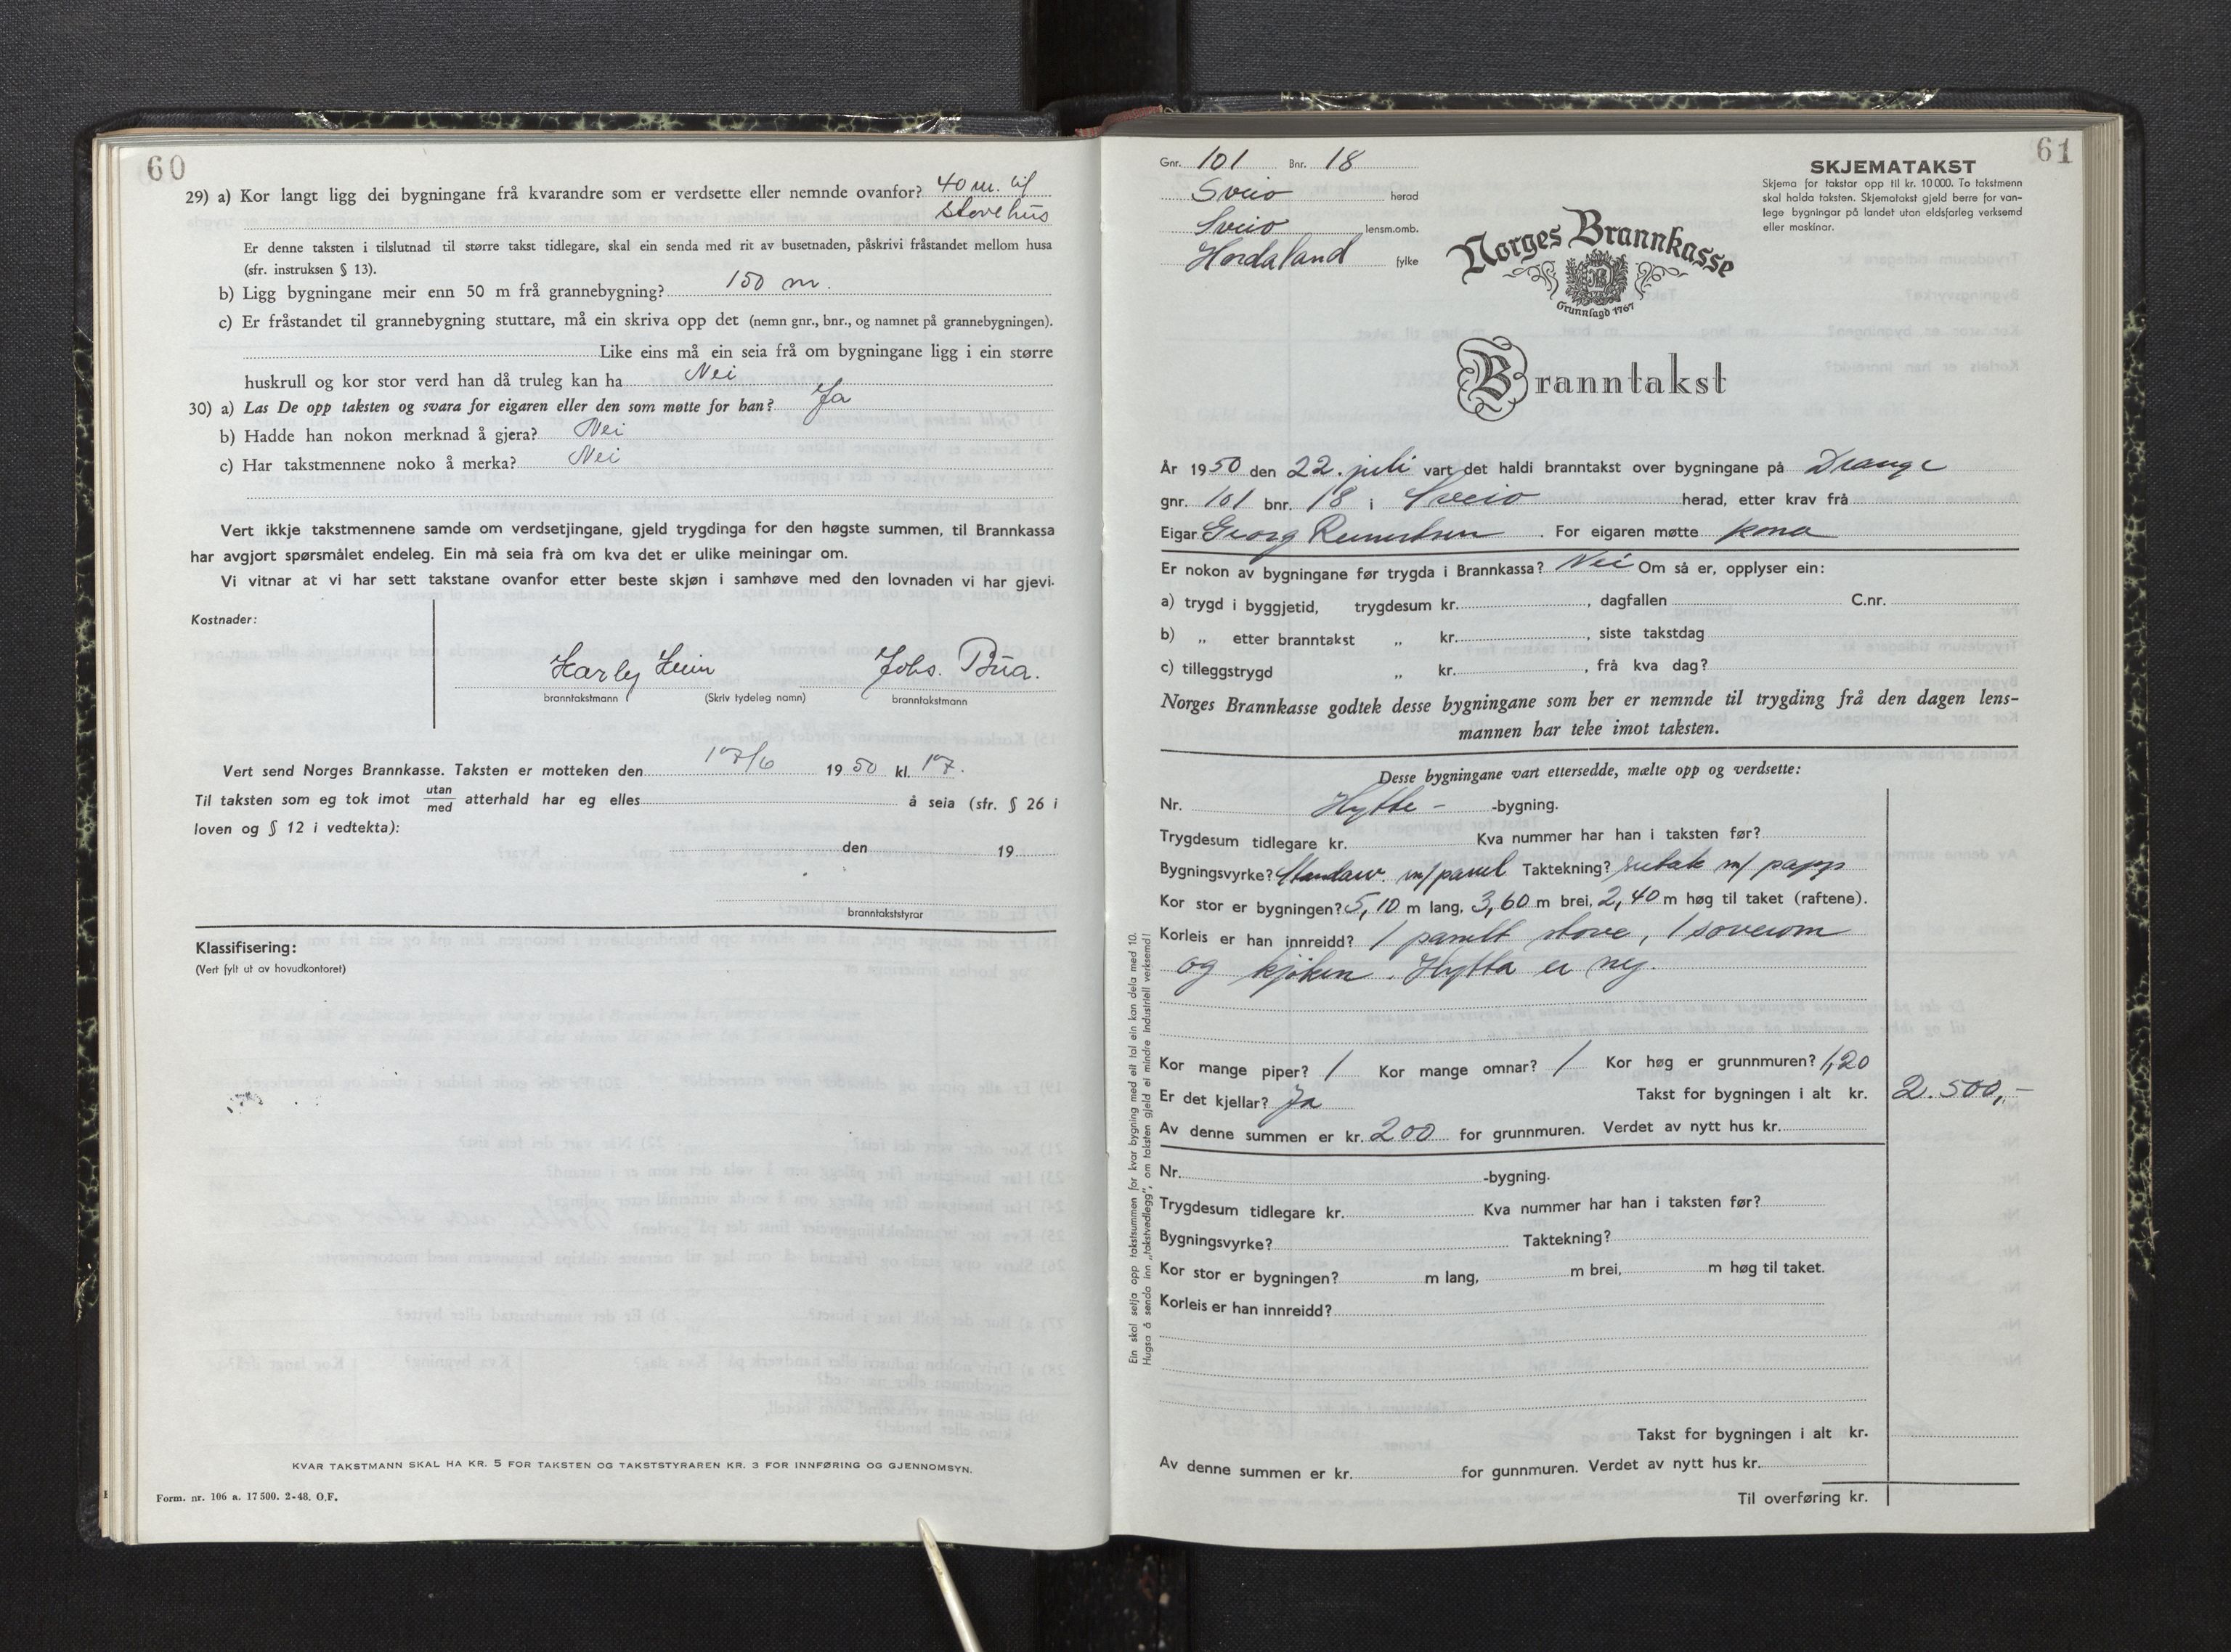 60
29) a) Kor langt ligg dei bygningane frå kvarandre som er verdsette eller nemnde ovanfor? 40 m. til
stovehus
Er denne taksten i tilslutnad til større takst tidlegare, skal ein senda med rit av busetnaden, påskrivi fråstandet mellom husa
(sfr. instruksen § 13).
b) Ligg bygningane meir enn 50 m frå grannebygning? 150 m.
c) Er fråstandet til grannebygning stuttare, må ein skriva opp det (nemn gnr., bnr., og namnet på grannebygningen).
Like eins må ein seia frå om bygningane ligg i ein større
huskrull og kor stor verd han då truleg kan ha Nei
30) a) Las De opp taksten og svara for eigaren eller den som møtte for han? Ja
b) Hadde han nokon merknad å gjera? Nei
c) Har takstmennene noko å merka? Nei
Vert ikkje takstmennene samde om verdsetjingane, gjeld trygdinga for den høgste summen, til Brannkassa
har avgjort spørsmålet endeleg. Ein må seia frå om kva det er ulike meiningar om.
Vi vitnar at vi har sett takstane ovanfor etter beste skjøn i samhøve med den lovnaden vi har gjevi.
Kostnader:
Harly Heim Johs. Bua.
branntakstmann (Skriv tydeleg namn) branntakstmann
Vert send Norges Brannkasse. Taksten er motteken den 17/6 1950 kl. 17.
Til taksten som eg tok imot utan/med atterhald har eg elles å seia (sfr. § 26 i
loven og § 12 i vedtekta):
den 19
branntakststyrar
Klassifisering:
(Vert fylt ut av hovudkontoret)
KVAR TAKSTMANN SKAL HA KR. 5 FOR TAKSTEN OG TAKSTSTYRAREN KR. 3 FOR INNFØRING OG GJENNOMSYN.
Form. nr. 106 a. 17 500. 2-48. O.F.
61
Gnr. 101 Bnr. 18
Sveio herad
Sveio lensm.omb.
Hordaland fylke
SKJEMATAKST
Skjema for takstar opp til kr. 10 000. To takstmenn
skal halda taksten. Skjematakst gjeld berre for van-
lege bygningar på landet utan eldsfarleg verksemd
eller maskinar.
Norges Brannkasse
Grunnlagd 1767
Branntakst
År 1950 den 22. juli vart det haldi branntakst over bygningane på Drange
gnr. 101 bnr. 18 i Sveio herad, etter krav frå
Eigar Georg . For eigaren møtte kona
Er nokon av bygningane før trygda i Brannkassa? Nei Om så er, opplyser ein:
a) trygd i byggjetid, trygdesum kr. , dagfallen C.nr.
b) „ etter branntakst „ kr. , siste takstdag
c) tilleggstrygd „ kr. , frå kva dag?
Norges Brannkasse godtek desse bygningane som her er nemnde til trygding frå den dagen lens-
mannen har teke imot taksten.
Desse bygningane vart ettersedde, mælte opp og verdsette:
Nr. Hytte- -bygning.
Trygdesum tidlegare kr. Kva nummer har han i taksten før?
Bygningsvyrke? m/panel Taktekning? sutak m/ papp
Kor stor er bygningen? 5,10 m lang, 3,60 m brei, 2,40 m høg til taket (raftene).
Korleis er han innreidd? 1 panelt stove, 1 soverom
og kjøken. Hytta er ny.
Kor mange piper? 1 Kor mange omnar? 1 Kor høg er grunnmuren? 1,20
Er det kjellar? Ja Takst for bygningen i alt kr. 2.500,-
Av denne summen er kr. 200 for grunnmuren. Verdet av nytt hus kr.
Nr. -bygning.
Trygdesum tidlegare kr. Kva nummer har han i taksten før?
Bygningsvyrke? Taktekning?
Kor stor er bygningen? m lang, m brei, m høg til taket.
Korleis er han innreidd?
Takst for bygningen i alt kr.
Av denne summen er kr. for gunnmuren. Verdet av nytt hus kr.
Til overføring kr.
Ein skal setja opp takstsummen for kvar bygning med eit tal ein kan dela med 10.
Hugsa å senda inn „takstvedlegg", om taksten gjeld ei mindre industriell verksemd!